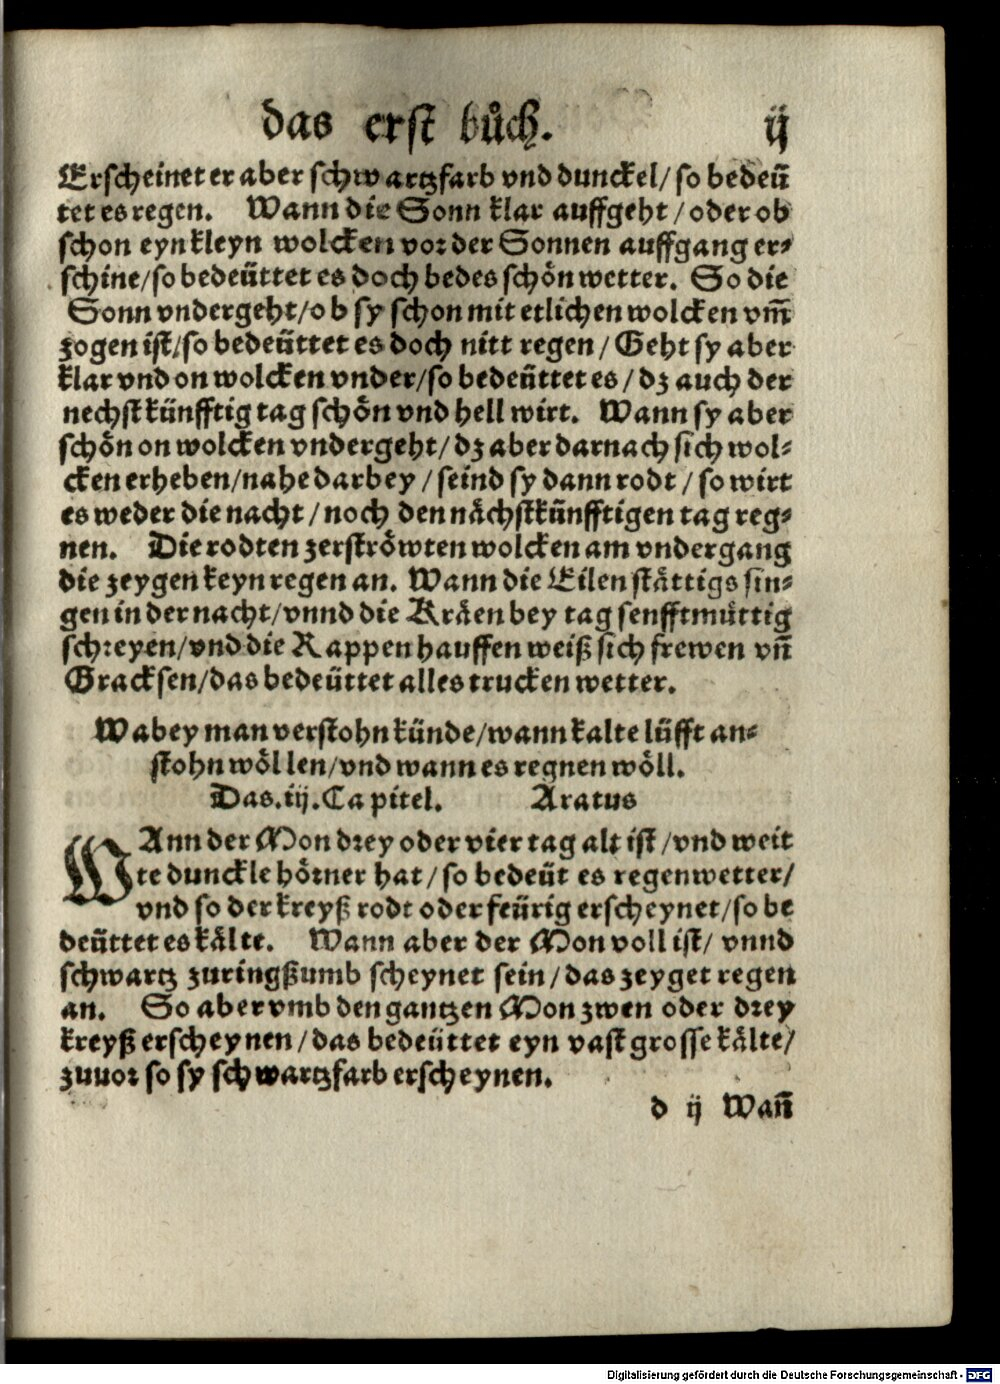 das erst bůch. ij
Erscheinet er aber schwartzfarb vnd dunckel/ so bedeü
tet es regen. Wann die Sonn klar auffgeht / oder ob
schon eyn kleyn wolcken vor der Sonnen auffgang er⸗
schine/so bedeüttet es doch bedes schön wetter. So die
Sonn vndergeht/ob sy schon mit etlichen wolcken vm̄
zogen ist/so bedeüttet es doch nitt regen / Geht sy aber
klar vnd on wolcken vnder/so bedeüttet es / dz auch der
nechstkünfftig tag schön vnd hell wirt. Wann sy aber
schön on wolcken vndergeht/ dz aber darnach sich wol⸗
cken erheben/nahe darbey / seind sy dann rodt / so wirt
es weder die nacht / noch den nächstkünfftigen tag reg⸗
nen. Die rodten zerströwten wolcken am vndergang
die zeygen keyn regen an. Wann die Eilen stättigs sin⸗
gen in der nacht/vnnd die Kräen bey tag senfftmüttig
schreyen/vnd die Rappen hauffen weiß sich frewen vn̄
Gracksen/das bedeüttet alles trucken wetter.
Wabey man verstohn künde/wann kalte lüfft an⸗
stohn wöllen/vnd wann es regnen wöll.
Das.iij.Capitel. Aratus
WAnn der Mon drey oder vier tag alt ist /vnd weit
te dunckle hörner hat / so bedeüt es regenwetter/
vnd so der kreyß rodt oder feürig erscheynet/so be
deüttet es kälte. Wann aber der Mon voll ist/ vnnd
schwartz zuringßumb scheynet sein / das zeyget regen
an. So aber vmb den gantzen Mon zwen oder drey
kreyß erscheynen /das bedeüttet eyn vast grosse kälte/
zuuor so sy schwartzfarb erscheynen.
d ij Wan̄
Digitalisierung gefördert durch die Deutsche Forschungsgemeinschaft - DFG